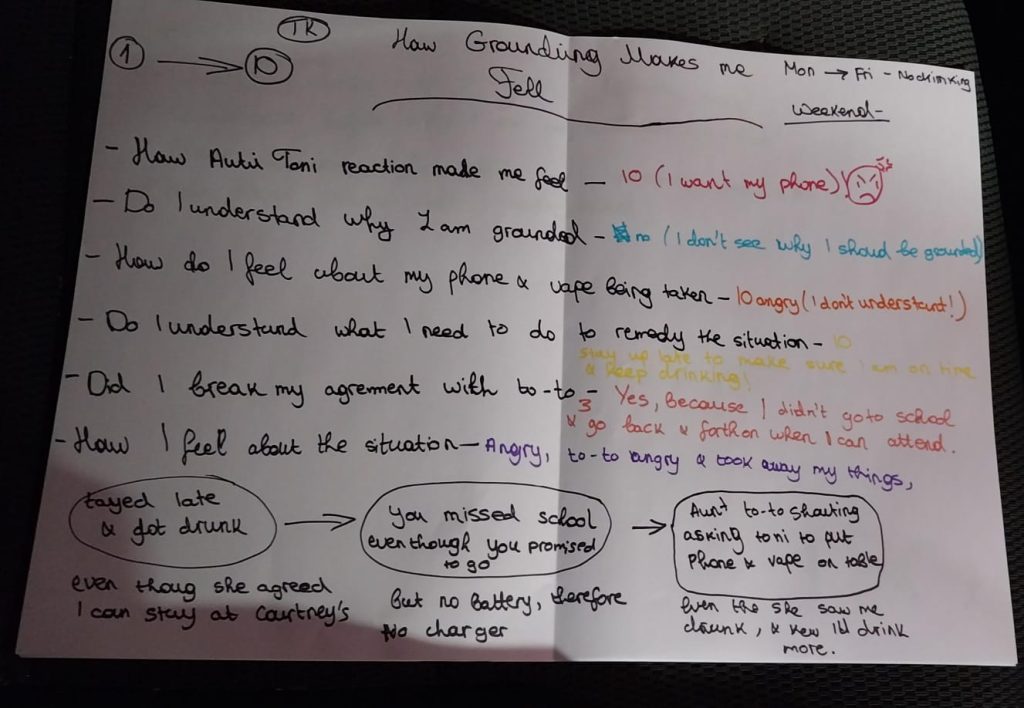 1 → 10
TK
How Groundiing Makes me
Fell
Mon → Fri - No drinking
Weekend-
- How Autii Toni reaction made me feel - 10 (I want my phone)!
- Do I understand why I am grounded - no (I don't see why I should be grounded)
- How do I feel about my phone & vape being taken - 10 angry (I don't understant!)
- Do I understand what I need to do to remedy the situation - 10
stay up late to make sure I am on time
& keep drinking!
- Did I break my agrement with to-to - Yes, Because I didn't go to school
3 & go back & forth on when I can attend.
- How I feel about the situation - Angry, to-to angry & took away my things,
tayed late
& got drunk
→
You missed school
even though you promised
to go
→
Aunt to-to shouting
asking toni to put
phone & vape on table
even thoug she agreed
I can stay at Courtney's
But no Battery, therefore
No charger
Even the she saw me
drunk, & kew I'd drink
more.